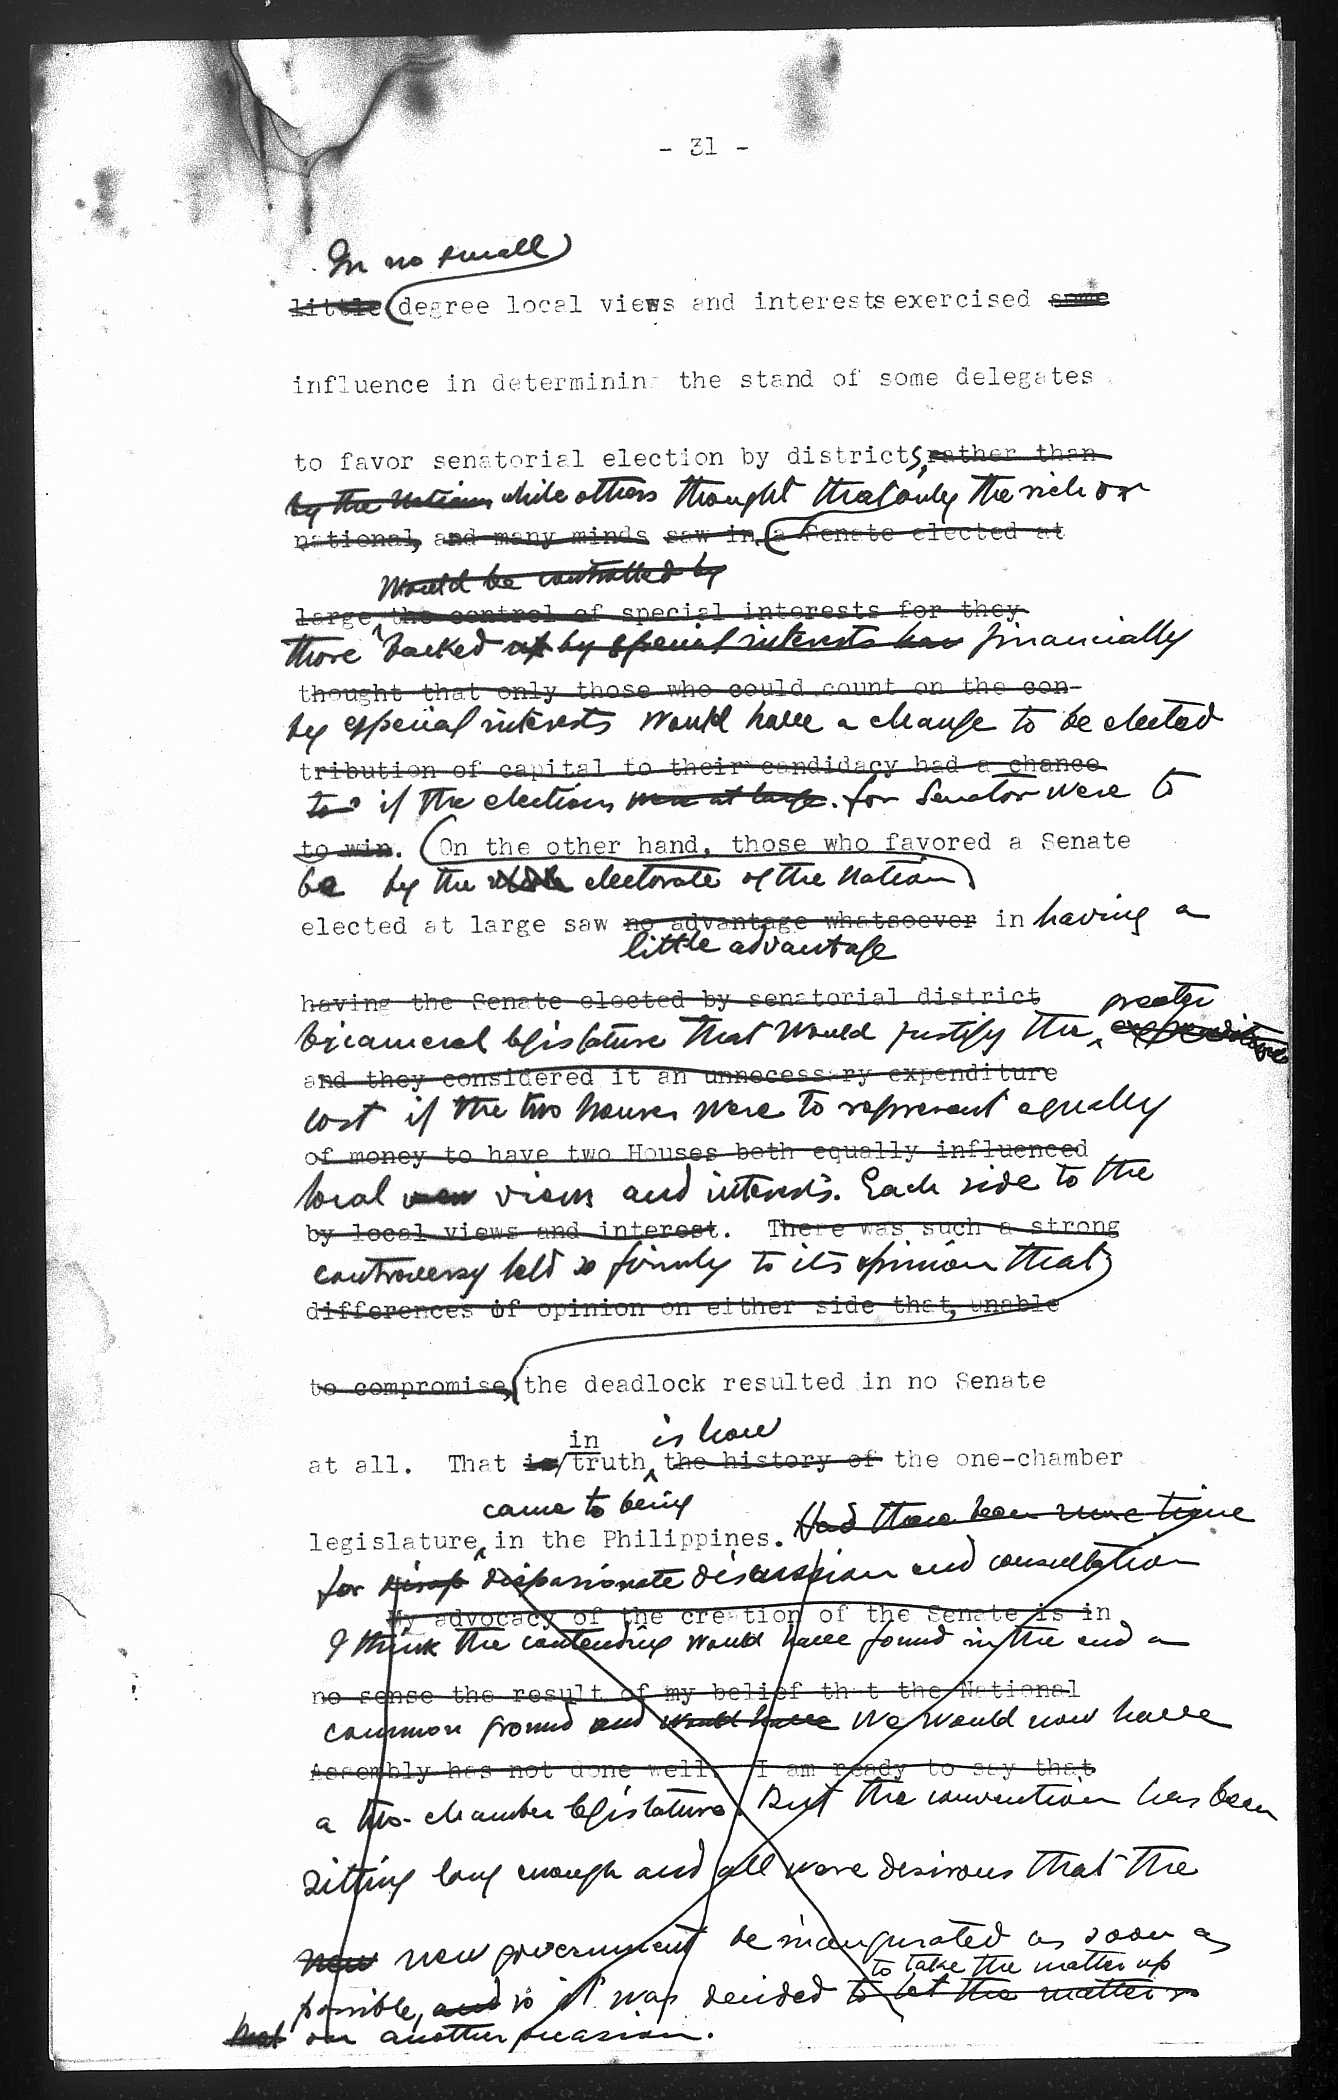 - 31 -
In no small
little degree local views and interests exercised some
influence in determining the stand of some delegates
to favor senatorial election by districts, rather than
by the Nation, while others thought that only the rich or
national, and many minds saw in a Senate elected at
would be controlled by
large the control of special interests for they
those backed up by special interests have financially
thought that only those who could count on the con-
by special interests would have a change to be elected
tribution of capital to their candidacy had a chance
to if the elections were at large. for Senator were to
to win. On the other hand, those who favored a Senate
be by the whole electorate of the Nation
elected at large saw no advantage whatsoever in having a
little advantage
having the Senate elected by senatorial district
greater
bicameral legislature that would justify the expenditure
and they considered it an unnecessary expenditure
cost if the two houses were to represent equally
of money to have two Houses both equally influenced
local views and interests. Each side to the
by local views and interest. There was such a strong
controversy held so firmly to its opinion that
differences of opinion on either side that, unable
to compromise, the deadlock resulted in no Senate
in is how
at all. That is/truth, the history of the one-chamber
came to being
legislature in the Philippines. Had there been more time
for dispassionate discussion and consultation
My advocacy of the creation of the Senate is in
I think the contending would have found in the end a
no sense the result of my belief that the National
common ground and would have We would now have
Assembly has not done well. I am ready to say that
a two-chamber legislature. But the convention has been
sitting long enough and all were desirous that the
new new government be inaugurated as soon as
to take the matter up
possible, and so it was decided to let the matter
on another occasion.